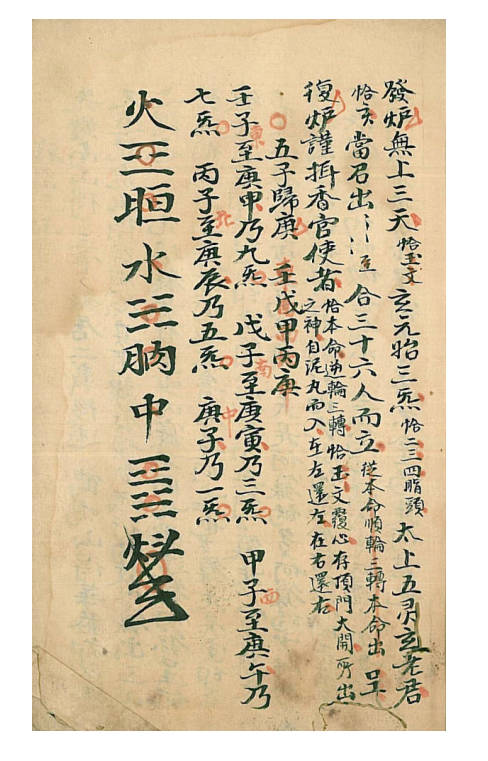 發炉無上三天 恰玉文 玄元始三炁 恰二三四指頭 太上五灵玄老君
恰亥當君出 合三十六人而立 從本命順輪三轉本命出 呈
復炉謹揖香官使者 恰本命逆輪三轉恰玉文覆心存頂門大開所出
之神自泥丸而入在左還左在右還右
五子歸庚 壬戊甲丙庚
壬子至庚申乃九炁 戊子至庚寅乃三炁 甲子至庚午乃
七炁 丙子至庚辰乃五炁 庚子乃一炁
火三晅水三朒中三三
東
南
西
北
中